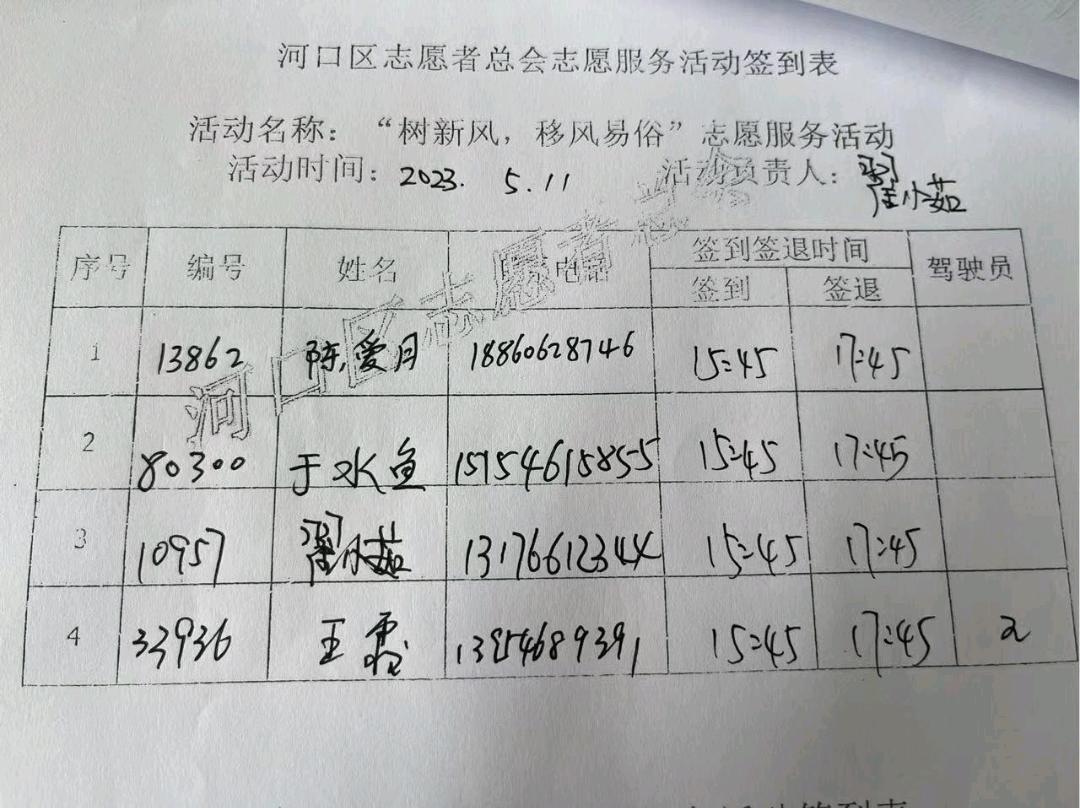 河口区志愿者总会志愿服务活动签到表
活动名称：“树新风，移风易俗”志愿服务活动
活动时间：2023. 5.11 活动负责人：翟小茹
序号 编号 姓名 联系电话 签到签退时间 驾驶员
签到 签退
1 13862 陈爱月 18860628746 15:45 17:45
2 80300 于水鱼 15154615855 15:45 17:45
3 10957 翟小茹 13176612344 15:45 17:45
4 33936 王霞 13954689391 15:45 17:45 2
河口区志愿者总会